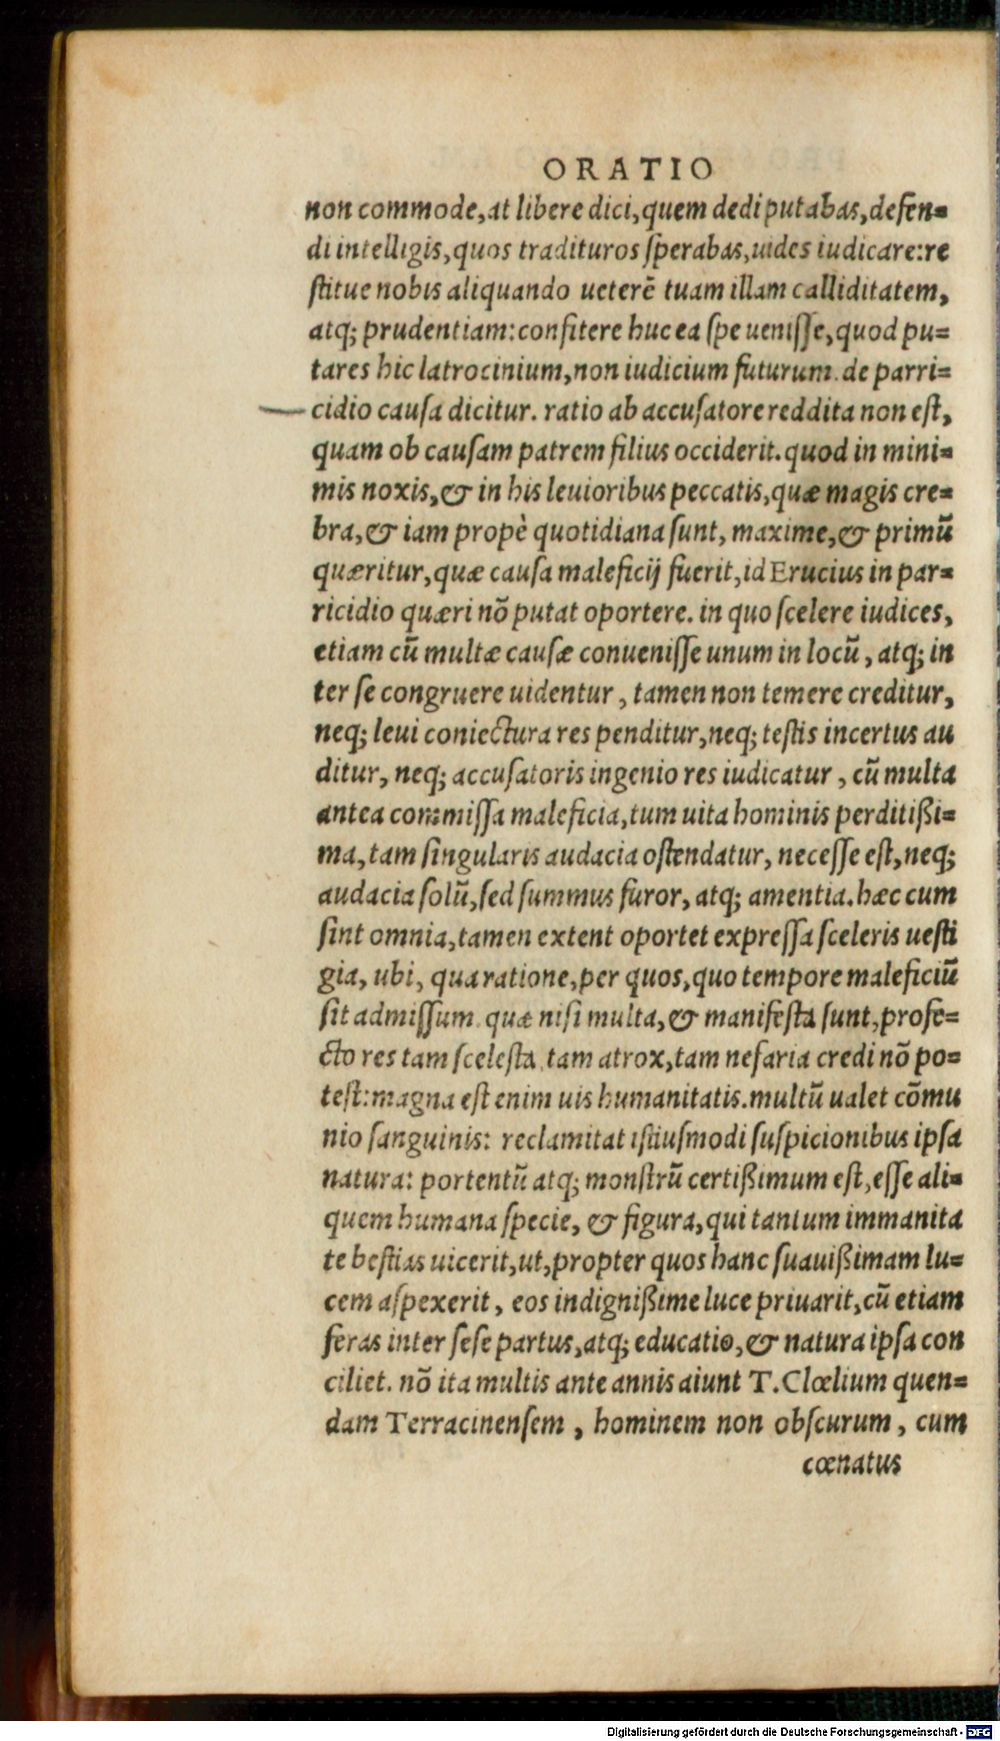 ORATIO
non commode, at libere dici, quem dedi putabas, defen=
di intelligis, quos tradituros sperabas, uides iudicare: re
stitue nobis aliquando ueterē tuam illam calliditatem,
atq; prudentiam: confitere huc ea spe uenisse, quod pu=
tares hic latrocinium, non iudicium futurum. de parri=
cidio causa dicitur. ratio ab accusatore reddita non est,
quam ob causam patrem filius occiderit. quod in mini=
mis noxis, & in his leuioribus peccatis, quæ magis cre=
bra, & iam propè quotidiana sunt, maxime, & primū
quæritur, quæ causa maleficij fuerit, id Erucius in par=
ricidio quæri nō putat oportere. in quo scelere iudices,
etiam cū multæ causæ conuenisse unum in locū, atq; in
ter se congruere uidentur, tamen non temere creditur,
neq; leui coniectura res penditur, neq; testis incertus au
ditur, neq; accusatoris ingenio res iudicatur, cū multa
antea commissa maleficia, tum uita hominis perditißi=
ma, tam singularis audacia ostendatur, necesse est, neq;
audacia solū, sed summus furor, atq; amentia. hæc cum
sint omnia, tamen extent oportet expressa sceleris uesti
gia, ubi, qua ratione, per quos, quo tempore maleficiū
sit admissum. quæ nisi multa, & manifesta sunt, profe=
cto res tam scelesta, tam atrox, tam nefaria credi nō po=
test: magna est enim uis humanitatis. multū ualet cōmu
nio sanguinis: reclamitat istiusmodi suspicionibus ipsa
natura: portentū atq; monstrū certißimum est, esse ali=
quem humana specie, & figura, qui tantum immanita
te bestias uicerit, ut, propter quos hanc suauißimam lu=
cem aspexerit, eos indignißime luce priuarit, cū etiam
feras inter sese partus, atq; educatio, & natura ipsa con
ciliet. nō ita multis ante annis aiunt T. Clœlium quen=
dam Terracinensem, hominem non obscurum, cum
cœnatus
Digitalisierung gefördert durch die Deutsche Forschungsgemeinschaft - DFG